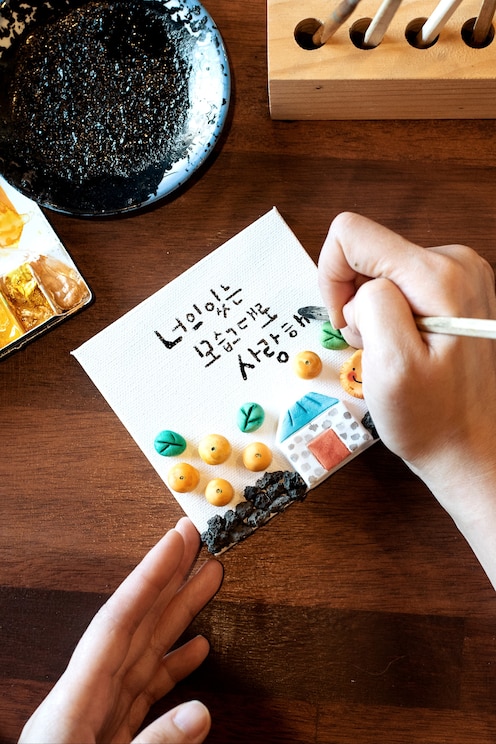 너의있는
모습그대로
사랑해